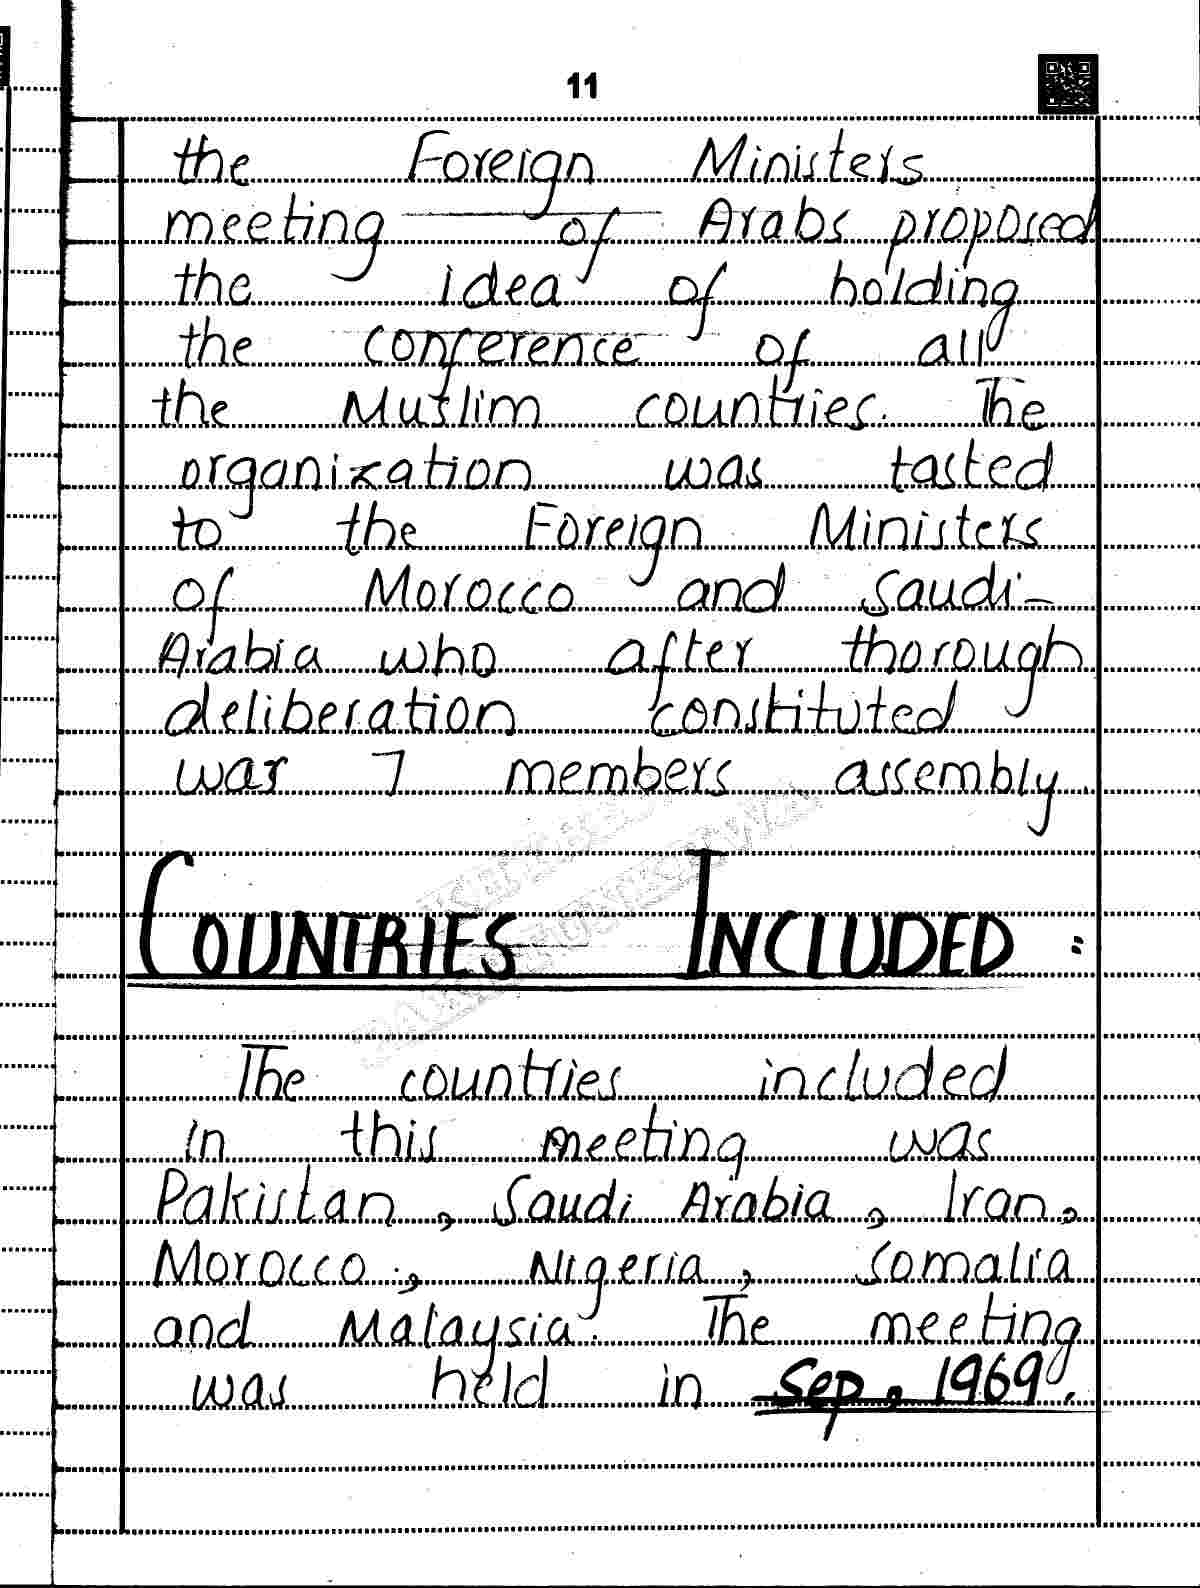 11
the Foreign Ministers
meeting of Arabs proposed
the idea of holding
the conference of all
the Muslim countries. The
organization was tasted
to the Foreign Ministers
of Morocco and Saudi-
Arabia who after thorough
deliberation constituted
was 7 members assembly.
COUNTRIES INCLUDED :
The countries included
in this meeting was
Pakistan, Saudi Arabia, Iran,
Morocco, Nigeria, Somalia
and Malaysia. The meeting
was held in Sep, 1969.